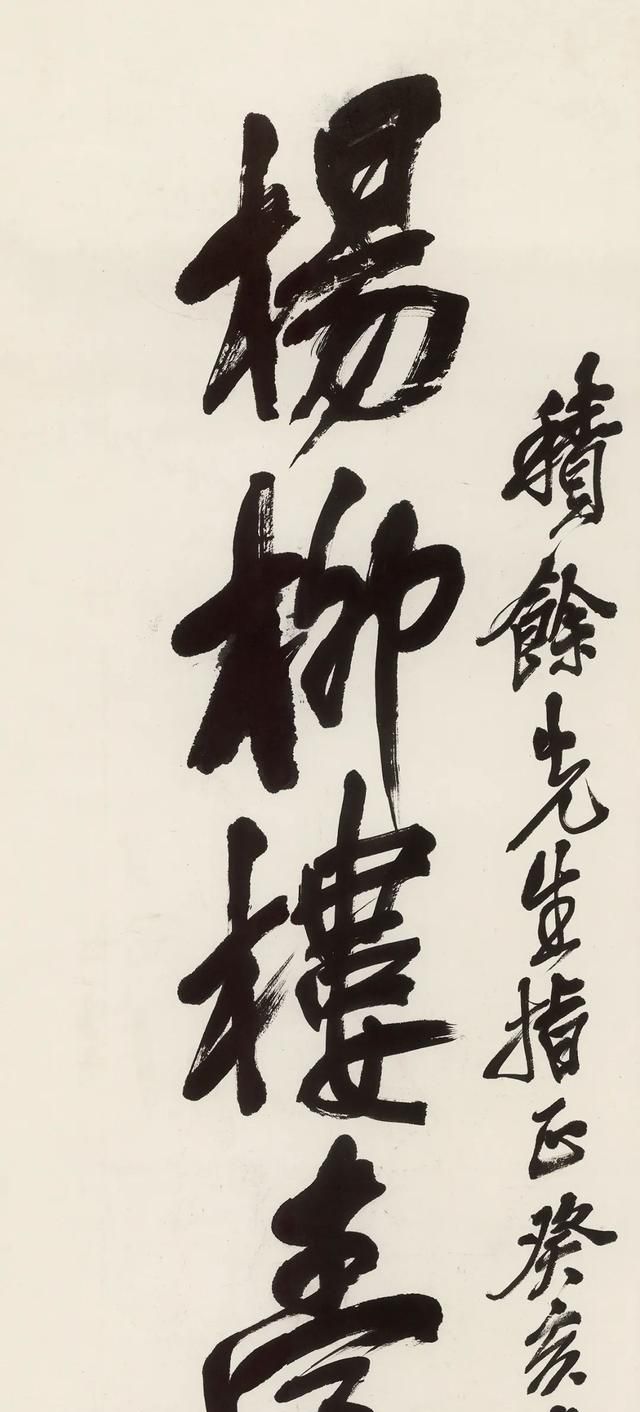 積餘先生指正癸亥
楊柳樓臺